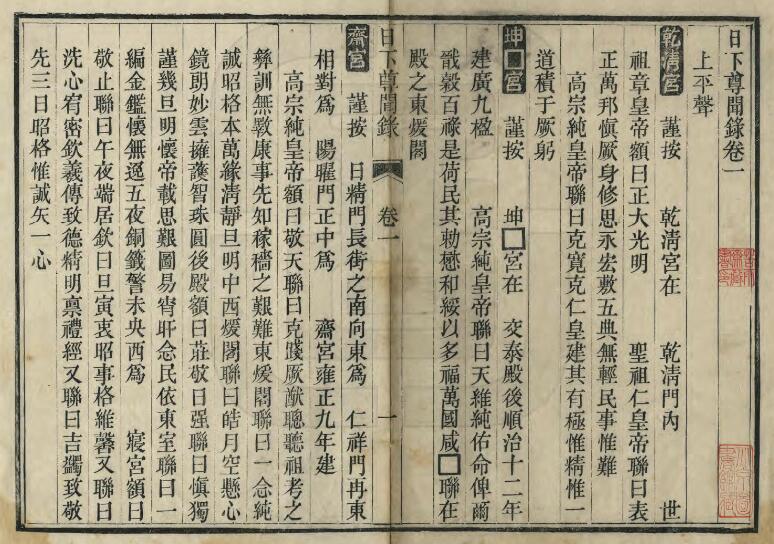 日下尊聞錄卷一
上平聲
乾清宮 謹按 乾清宮在 乾清門內 世
祖章皇帝額曰正大光明 聖祖仁皇帝聯曰表
正萬邦慎厥身修思永宏敷五典無輕民事惟難
高宗純皇帝聯曰克寬克仁皇建其有極惟精惟一
道積于厥躬
坤□宮 謹按 坤□宮在 交泰殿後順治十二年
建廣九楹 高宗純皇帝聯曰天維純佑命俾爾
戩穀百祿是荷民其勅懋和綏以多福萬國咸□聯在
殿之東煖閣
日下尊聞錄 卷一 一
齋宮 謹按 日精門長街之南向東爲 仁祥門再東
相對爲 陽曜門正中爲 齋宮雍正九年建
高宗純皇帝額曰敬天聯曰克踐厥猷聰聽祖考之
彝訓無斁康事先知稼穡之艱難東煖閣聯曰一念純
誠昭格本萬緣清靜旦明中西煖閣聯曰皓月空懸心
鏡朗妙雲擁護智珠圓後殿額曰莊敬日强聯曰慎獨
謹幾旦明懷帝載思艱圖易宵旰念民依東室聯曰一
編金鑑懷無逸五夜銅籤警未央西爲 寢宮額曰
敬止聯曰午夜端居欽曰旦寅衷昭事格維馨又聯曰
洗心宥密欽羲傳致德精明禀禮經又聯曰吉蠲致敬
先三日昭格惟誠矢一心